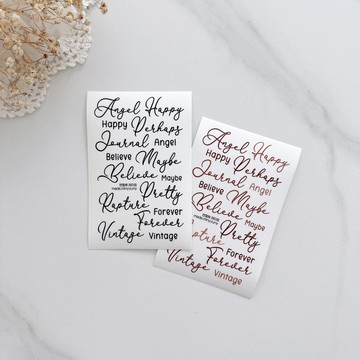 Angel Happy
Happy Perhaps
Journal Angel
Believe Maybe
Believe Maybe
Pretty
Rapture Forever
Forever
Vintage Vintage
Angel Happy
Happy Perhaps
Journal Angel
Believe Maybe
Believe Maybe
Pretty
Rapture Forever
Forever
Vintage Vintage